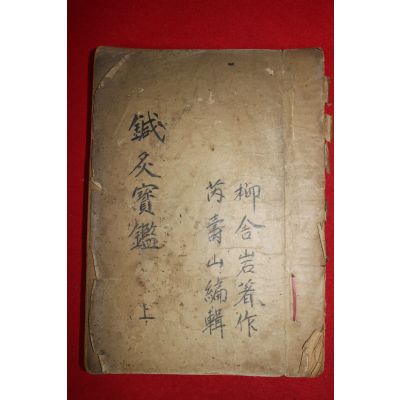 柳合岩著作
芮壽山編輯
鍼灸寶鑑 上